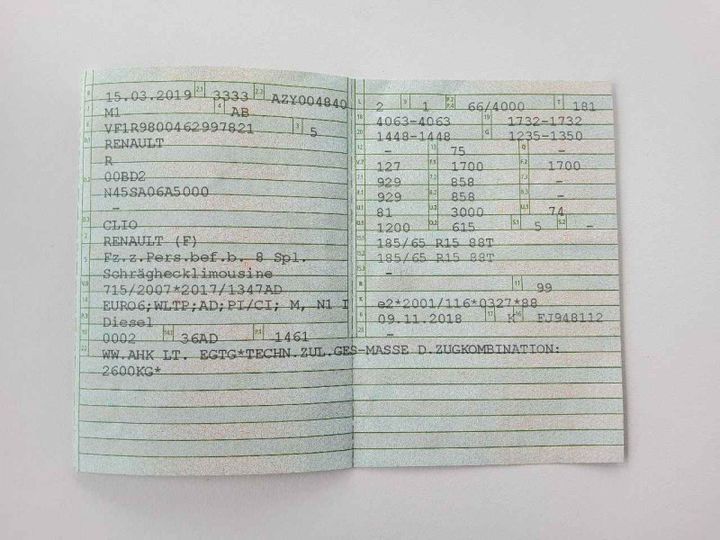 15.03.2019 3333 AZY004840
M1 AB
VF1R9800462997821 5
RENAULT
R
00BD2
N45SA06A5000
-
CLIO
RENAULT (F)
Fz.z.Pers.bef.b. 8 Spl.
Schräghecklimousine
715/2007*2017/1347AD
EURO6;WLTP;AD;PI/CI; M, N1 I
Diesel
0002 36AD 1461
WW.AHK LT. EGTG*TECHN.ZUL.GES-MASSE D.ZUGKOMBINATION:
2600KG*
2 1 66/4000 181
4063-4063 1732-1732
1448-1448 1235-1350
- 75 -
127 1700 1700
929 858 -
929 858 -
81 3000 74
1200 615 5 -
185/65 R15 88T
185/65 R15 88T
-
99
e2*2001/116*0327*88
09.11.2018 K FJ948112
-